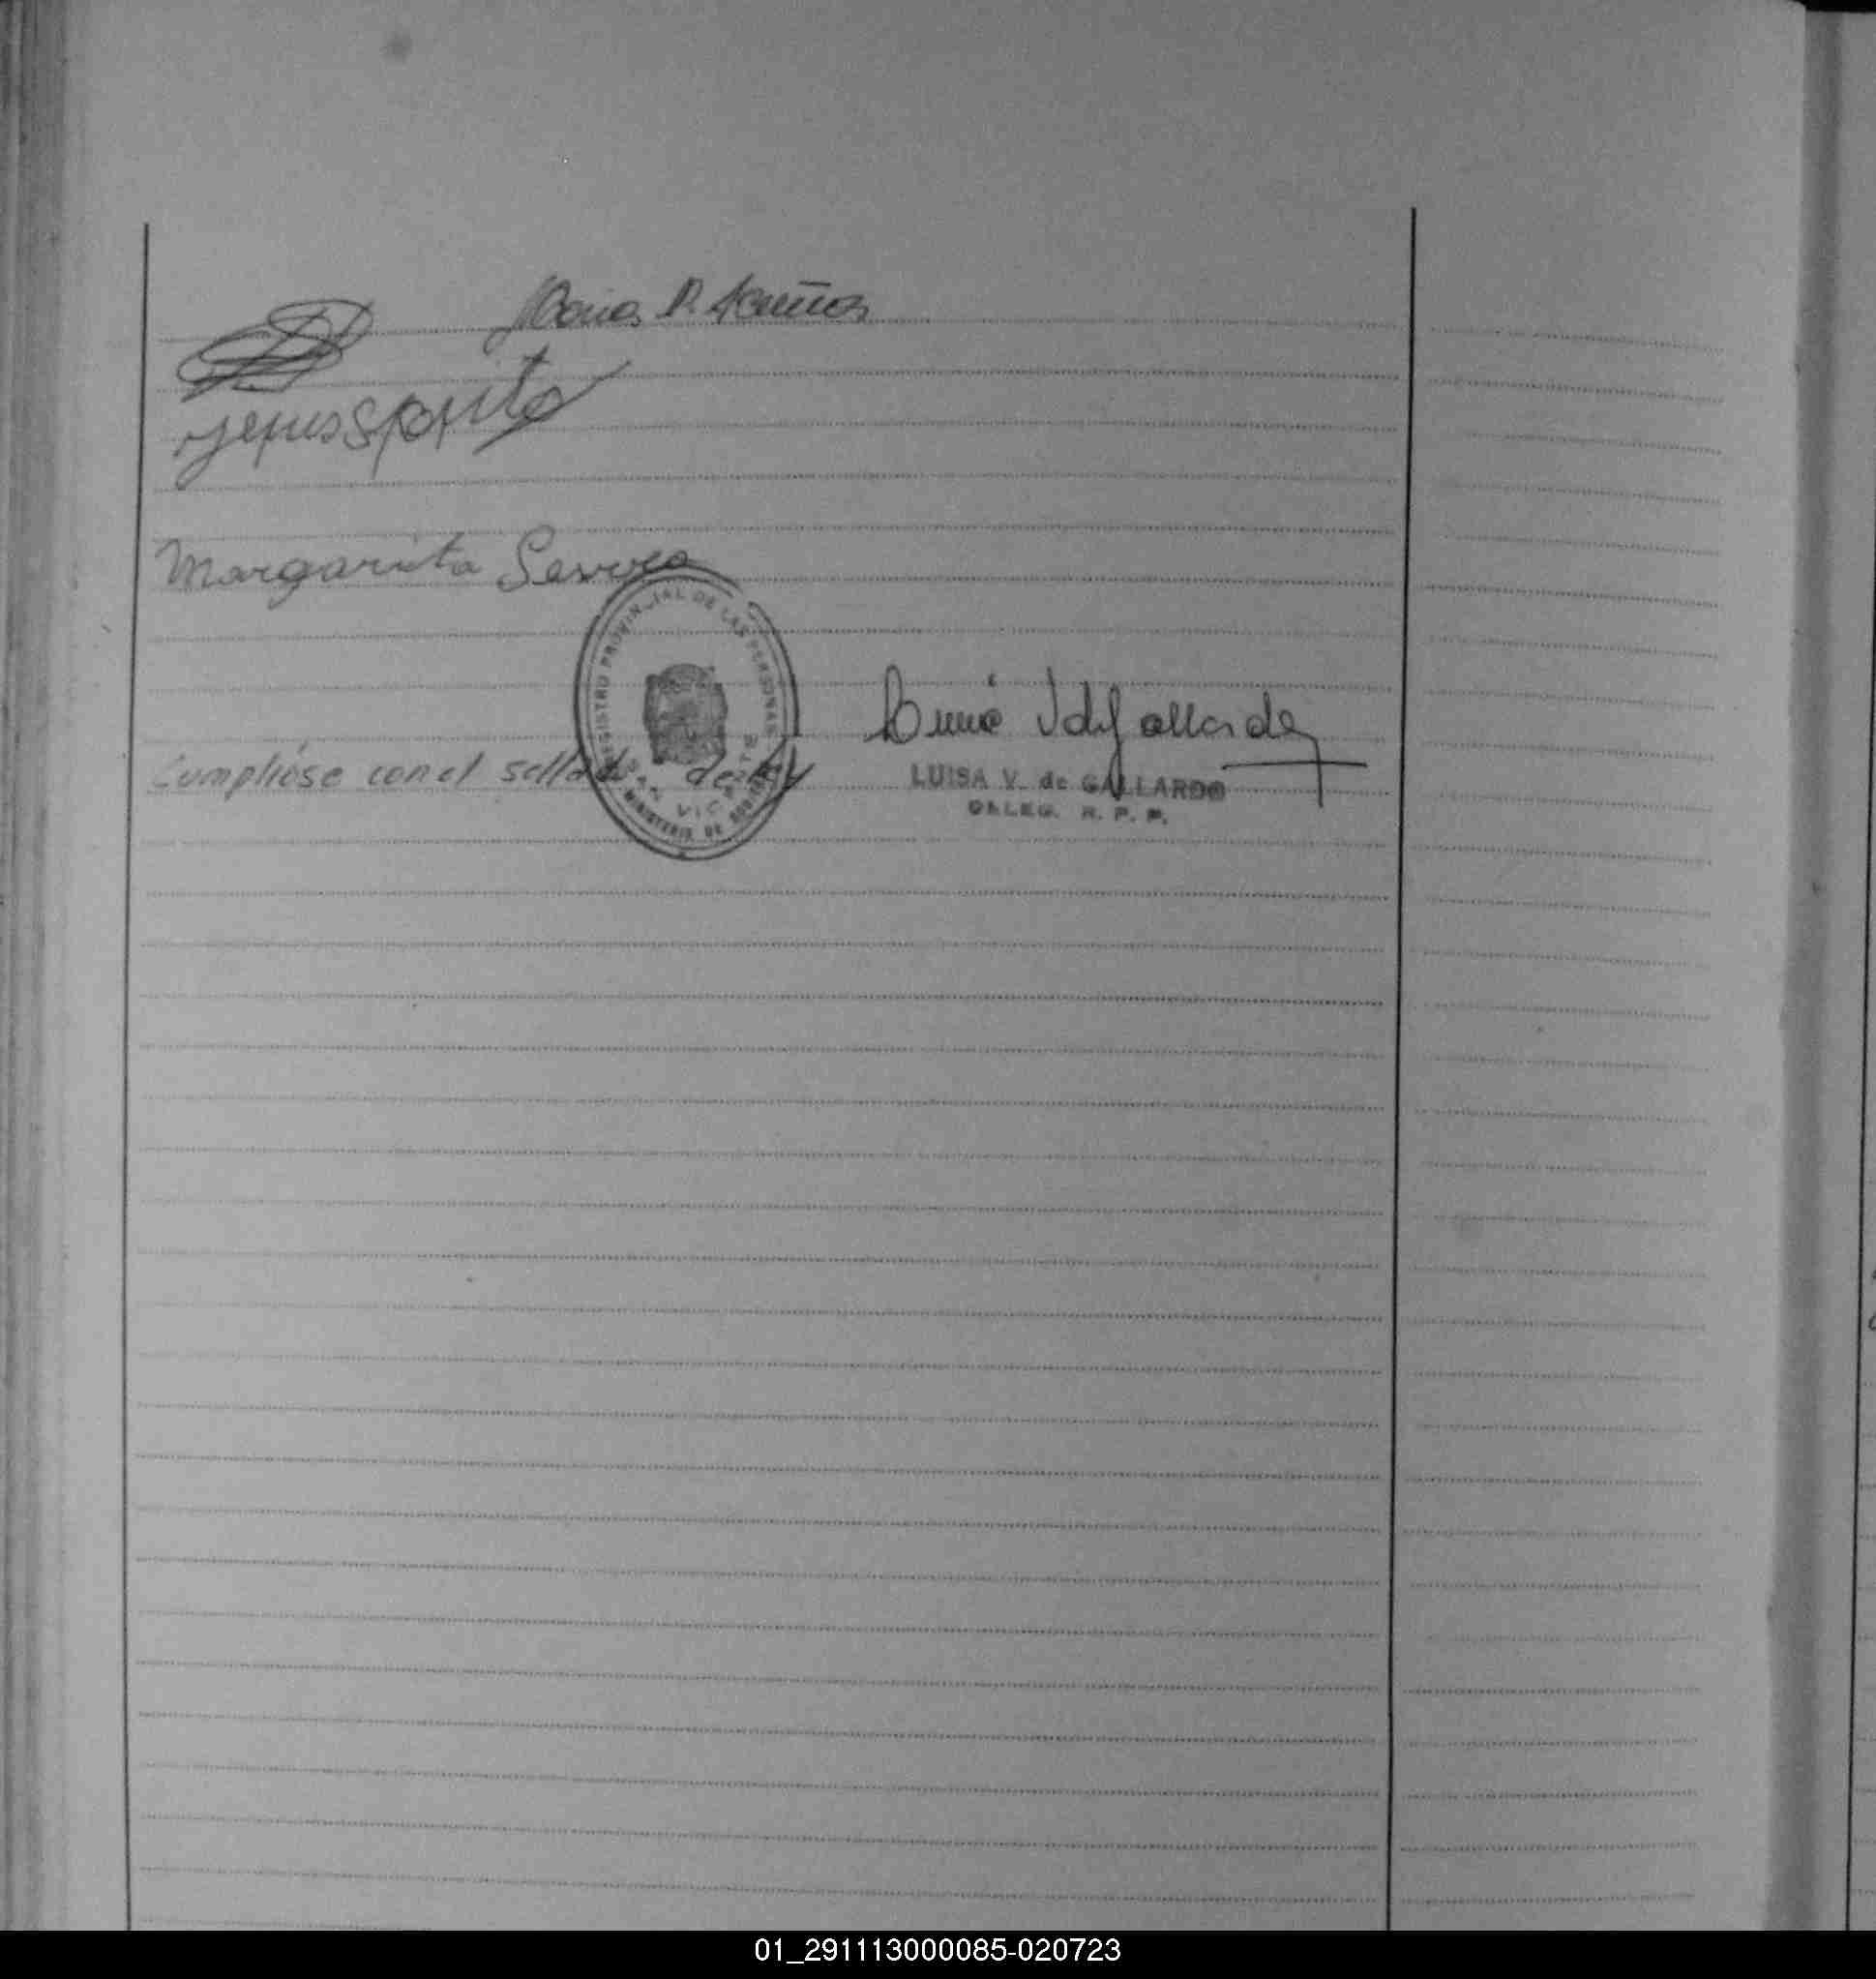 Maria R. Acuña
Jesus Sposito
Margarita
REGISTRO PROVINCIAL DE LAS PERSONAS
SAN VICENTE
MINISTERIO DE GOBIERNO
Cumplióse con el sellado de ley
LUISA V. de GALLARDO
DELEG. R. P. P.
01_291113000085-020723